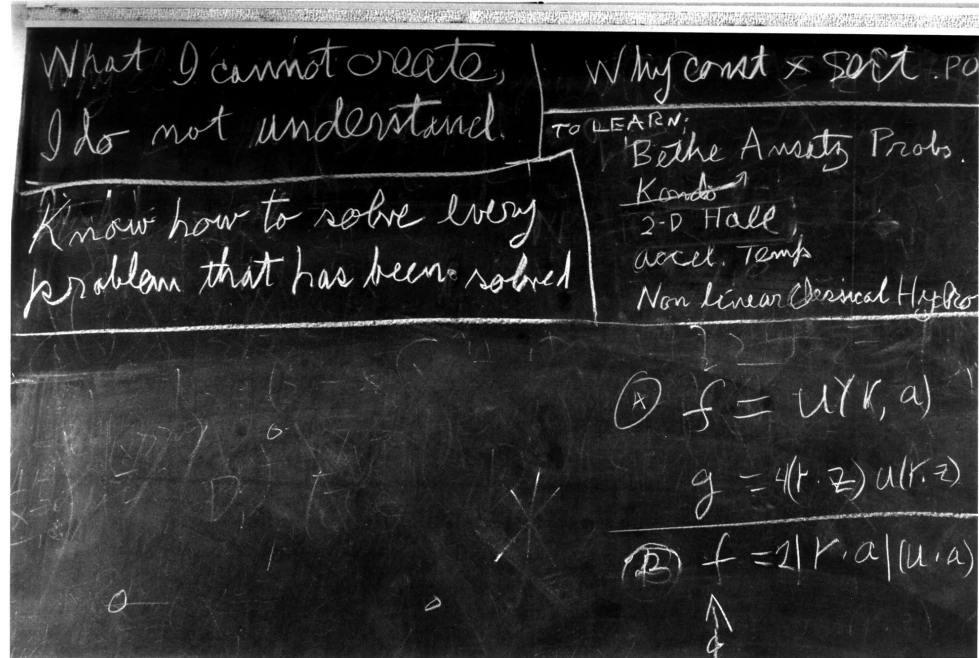 What I cannot create,
I do not understand.
Know how to solve every
problem that has been solved
Why const × sort . PO
TO LEARN:
Bethe Ansatz Probs.
Kondo
2-D Hall
accel. Temp
Non linear Classical Hydro
A f = U(r, a)
g = 4(r·z) u(r·z)
B f = 2|r·a|(u·a)